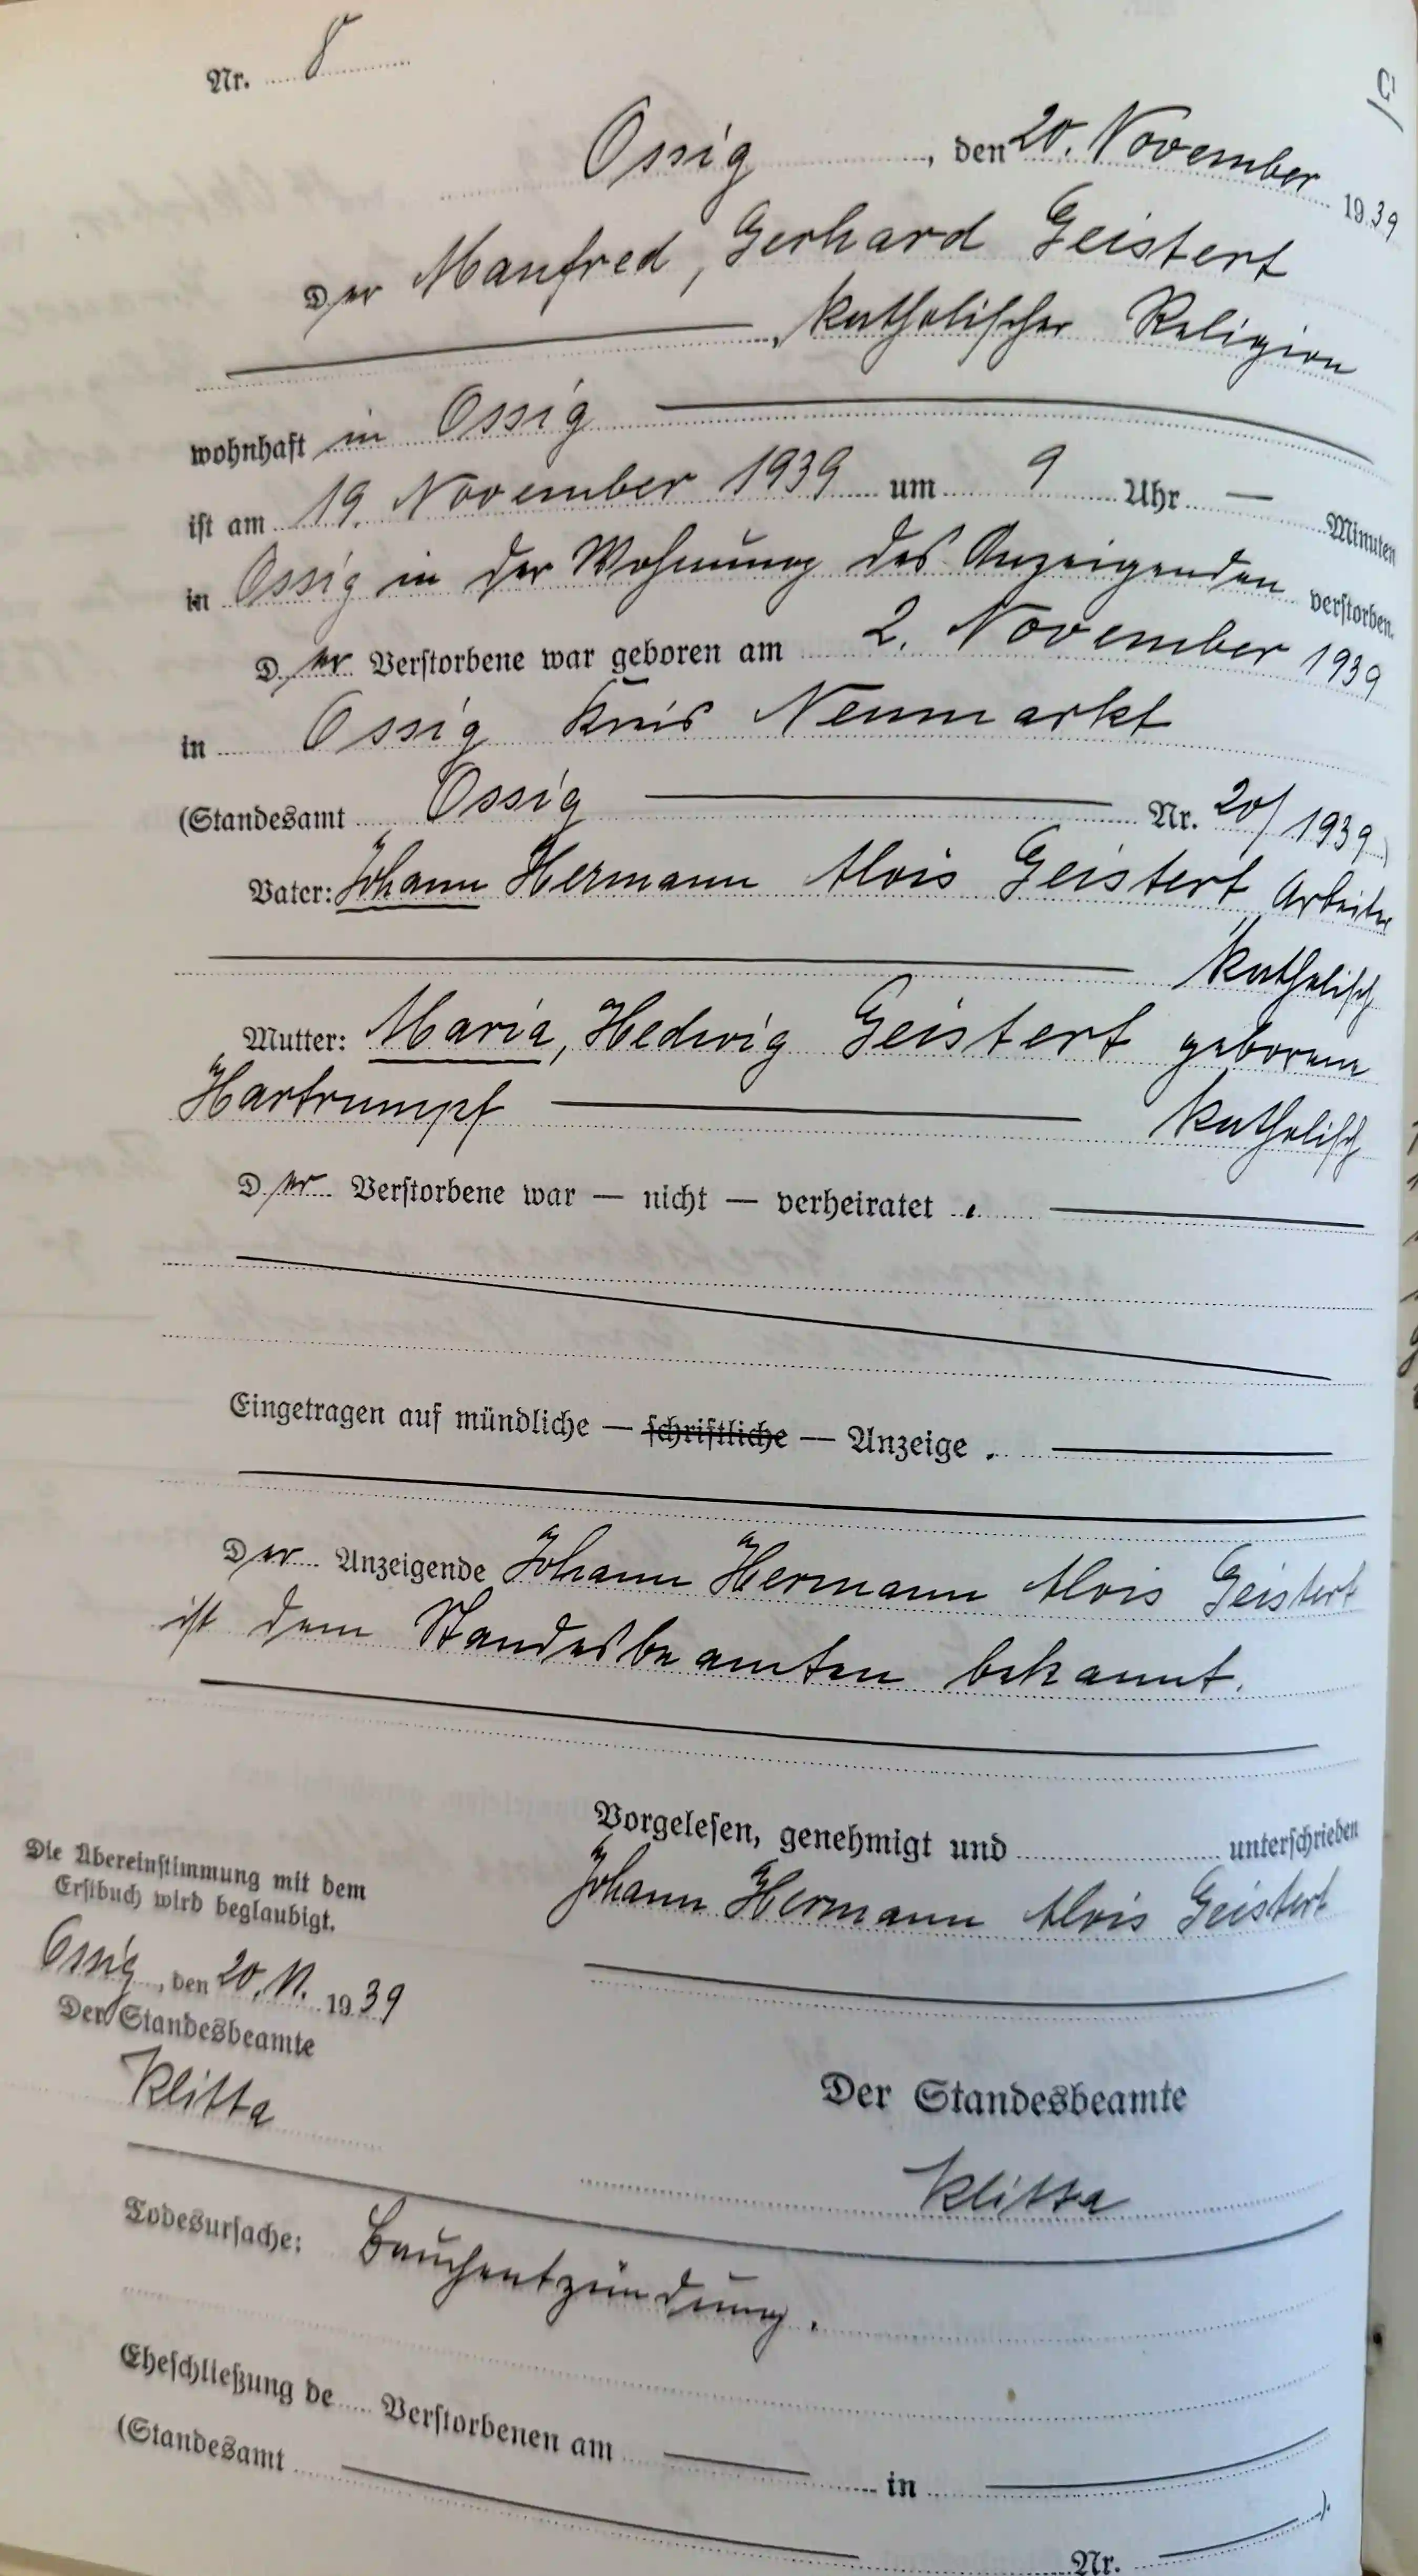 Nr. 8
C
Ossig, den 20. November 1939
Der Manfred, Gerhard Geistert
, katholischer Religion
wohnhaft in Ossig
ist am 19. November 1939 um 9 Uhr — Minuten
in Ossig in der Wohnung des Anzeigenden verstorben.
Der Verstorbene war geboren am 2. November 1939
in Ossig Kreis Neumarkt
(Standesamt Ossig Nr. 20/1939)
Vater: Johann Hermann Alois Geistert Arbeiter
katholisch
Mutter: Maria, Hedwig Geistert geborene
Hartrumpf katholisch
Der Verstorbene war — nicht — verheiratet.
Eingetragen auf mündliche — schriftliche — Anzeige.
Der Anzeigende Johann Hermann Alois Geistert
ist dem Standesbeamten bekannt.
Vorgelesen, genehmigt und unterschrieben
Johann Hermann Alois Geistert
Die Übereinstimmung mit dem
Erstbuch wird beglaubigt.
Ossig, den 20.11. 1939
Der Standesbeamte
Klitta
Der Standesbeamte
Klitta
Todesursache: Bauchentzündung.
Eheschließung de Verstorbenen am — in —
(Standesamt — Nr. — ).